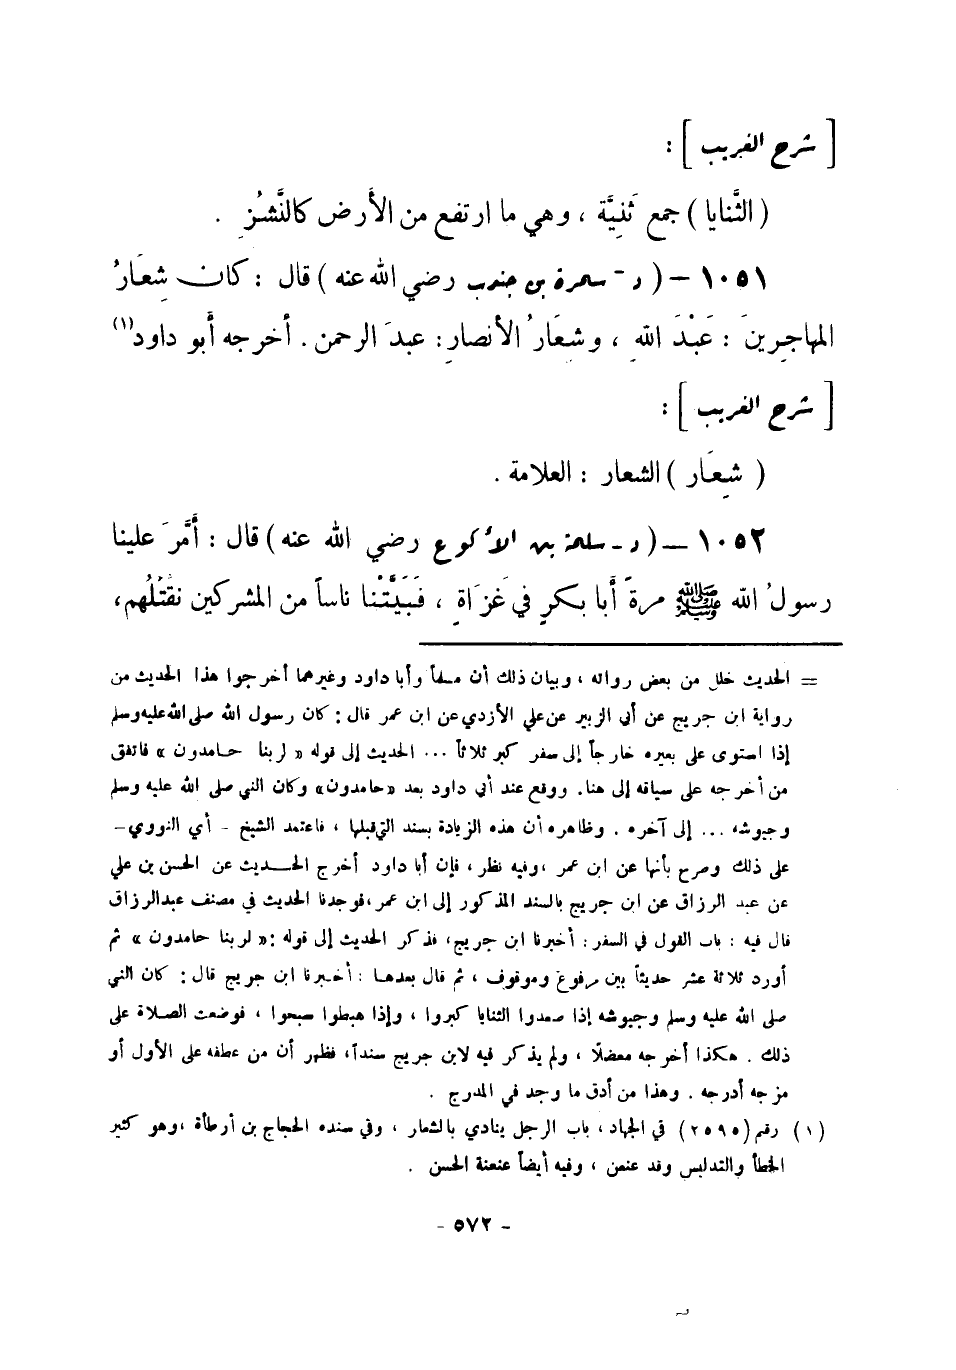 [ شرح الغريب ] :
( الثَّنايا ) جمع ثَنِيَّة ، وهي ما ارتفع من الأَرض كالنَّشْزِ .
١٠٥١ – ( د - سمرة بن جندب رضي الله عنه ) قال : كان شِعَارُ
المهاجِرينَ : عَبْدَ اللهِ ، وشعَارُ الأنصارِ : عبدَ الرحمن . أخرجه أَبو داود (١)
[ شرح الغريب ] :
( شِعَار ) الشعار : العلامة .
١٠٥٢ – ( د - سلمة بن الأكوع رضي الله عنه ) قال : أَمَّرَ علينا
رسولُ الله ﷺ مرةً أَبا بكرٍ في غَزَاةٍ ، فَبَيَّتْنا ناساً من المشركين نقتُلُهم،
= الحديث خلل من بعض رواته ، وبيان ذلك أن مسلماً وأبا داود وغيرهما أخرجوا هذا الحديث من
رواية ابن جريج عن أبي الزبير عن علي الأزدي عن ابن عمر قال : كان رسول الله صلى الله عليه وسلم
إذا استوى على بعيره خارجاً إلى سفر كبر ثلاثاً ... الحديث إلى قوله « لربنا حامدون » فاتفق
من أخرجه على سياقه إلى هنا. ووقع عند أبي داود بعد «حامدون» وكان النبي صلى الله عليه وسلم
وجيوشه ... إلى آخره . وظاهره أن هذه الزيادة بسند التي قبلها ، فاعتمد الشيخ - أي النووي –
على ذلك وصرح بأنها عن ابن عمر ، وفيه نظر ، فإن أبا داود أخرج الحديث عن الحسن بن علي
عن عبد الرزاق عن ابن جريج بالسند المذكور إلى ابن عمر، فوجدنا الحديث في مصنف عبدالرزاق
قال فيه : باب القول في السفر : أخبرنا ابن جريج، فذكر الحديث إلى قوله :« لربنا حامدون » ثم
أورد ثلاثة عشر حديثاً بين مرفوع وموقوف ، ثم قال بعدها : أخبرنا ابن جريج قال : كان النبي
صلى الله عليه وسلم وجيوشه إذا صعدوا الثنايا كبروا ، وإذا هبطوا سبحوا ، فوضعت الصلاة على
ذلك . هكذا أخرجه معضلًا ، ولم يذكر فيه لابن جريج سنداً، فظهر أن من عطفه على الأول أو
مزجه أدرجه . وهذا من أدق ما وجد في المدرج .
(١) رقم (٢٥٩٥) في الجهاد ، باب الرجل ينادي بالشعار ، وفي سنده الحجاج بن أرطأة ، وهو كثير
الخطأ والتدليس وقد عنعن ، وفيه أيضاً عنعنة الحسن .
- ٥٧٢ -